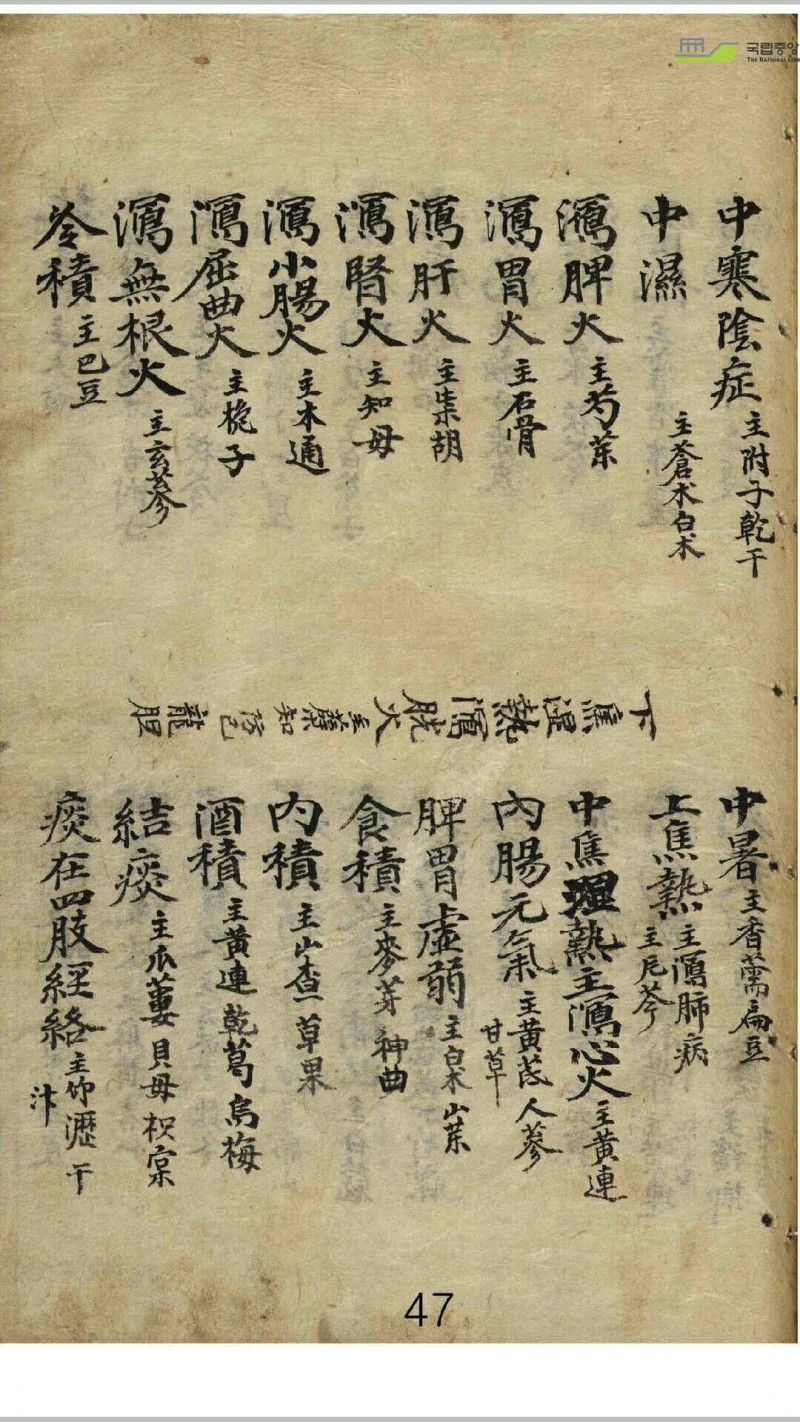 국립중앙
THE NATIONAL
中寒陰症 主附子乾干
中濕 主蒼朮白朮
瀉脾火 主芍藥
瀉胃火 主石骨
瀉肝火 主柴胡
瀉腎火 主知母
瀉小腸火 主木通
瀉屈曲火 主梔子
瀉無根火 主玄蔘
冷積 主巴豆
下焦湿熱瀉胱火 主蘗知防己龍胆
中暑 主香薷扁豆
上焦熱 主瀉肺病
主芩
中焦湿熱主瀉心火 主黄連
內腸元氣 主黄芪人蔘
甘草
脾胃虛弱 主白朮山藥
食積 主麥芽神曲
内積 主山查草果
酒積 主黄連乾葛烏梅
結痰 主瓜蔞貝母枳宲
痰在四肢經絡 主竹瀝干
汁
47